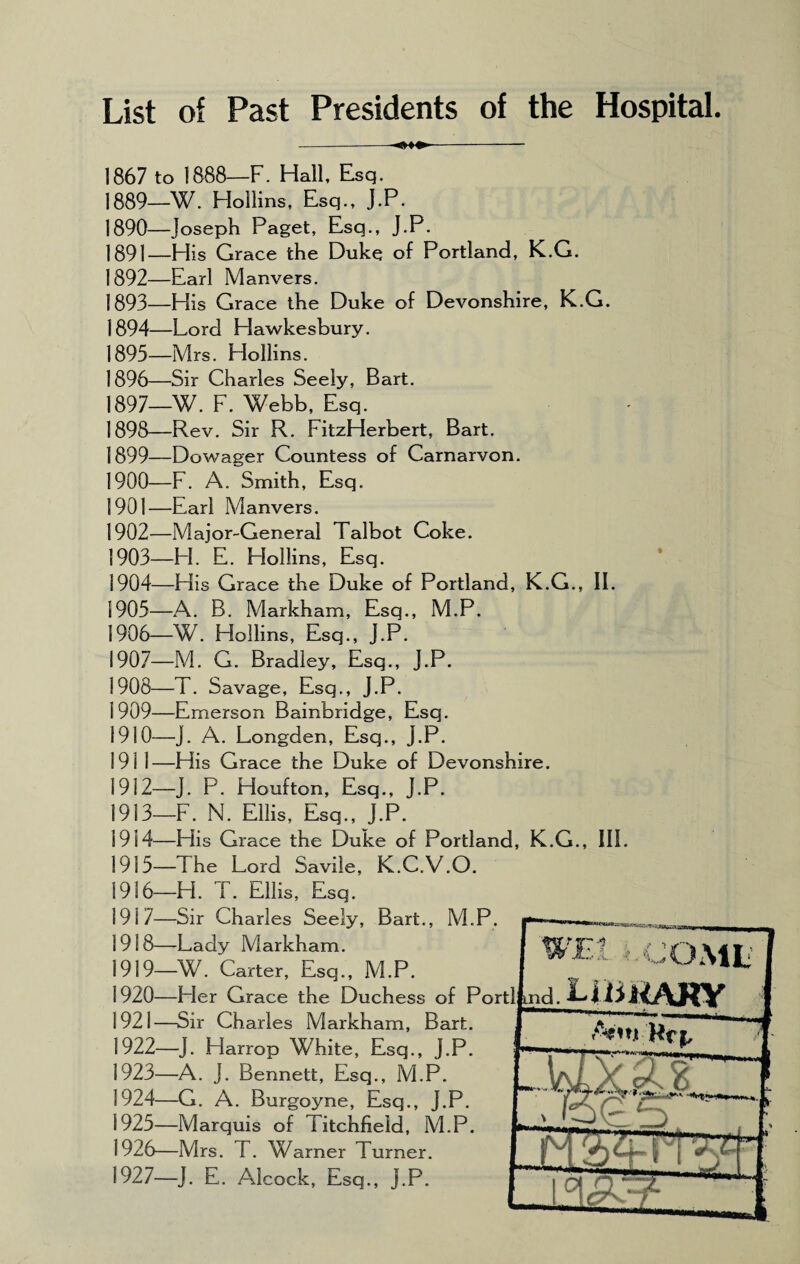 List of Past Presidents of the Hospital.
1867 to 1888—F. Hall, Esq.
1889—W. Hollins, Esq., J.P.
1890—Joseph Paget, Esq., J.P.
1891—His Grace the Duke of Portland, K.G.
1892—Earl Manvers.
1893—His Grace the Duke of Devonshire, K.G.
1894—Lord Hawkesbury.
1895—Mrs. Hollins.
1896—Sir Charles Seely, Bart.
1897—W. F. Webb, Esq.
1898—Rev. Sir R. FitzHerbert, Bart.
1899—Dowager Countess of Carnarvon.
1900—F. A. Smith, Esq.
1901—Earl Manvers.
1902—Major-General Talbot Coke.
1903—H. E. Hollins, Esq.
1904—His Grace the Duke of Portland, K.G., II.
1905—A. B. Markham, Esq., M.P.
1906—W. Hollins, Esq., J.P.
1907—M. G. Bradley, Esq., J.P.
1908—T. Savage, Esq., J.P.
1909—Emerson Bainbridge, Esq.
1910—J. A. Longden, Esq., J.P.
1911—His Grace the Duke of Devonshire.
1912—J. P. Houfton, Esq., J.P.
1913—F. N. Ellis, Esq., J.P.
1914—His Grace the Duke of Portland, K.G., III.
1915—The Lord Savile, K.C.V.O.
1916—H. T. Ellis, Esq.
1917—Sir Charles Seely, Bart., M.P.
1918—Lady Markham.
1919—W. Carter, Esq., M.P.
1920—Her Grace the Duchess of Portland.
1921—Sir Charles Markham, Bart.
1922—J. Harrop White, Esq., J.P.
1923—A. J. Bennett, Esq., M.P.
1924—G. A. Burgoyne, Esq., J.P.
1925—Marquis of Titchfield, M.P.
1926—Mrs. T. Warner Turner.
1927—J. E. Alcock, Esq., J.P.
LIBRARY
WX28
M34M34
1927